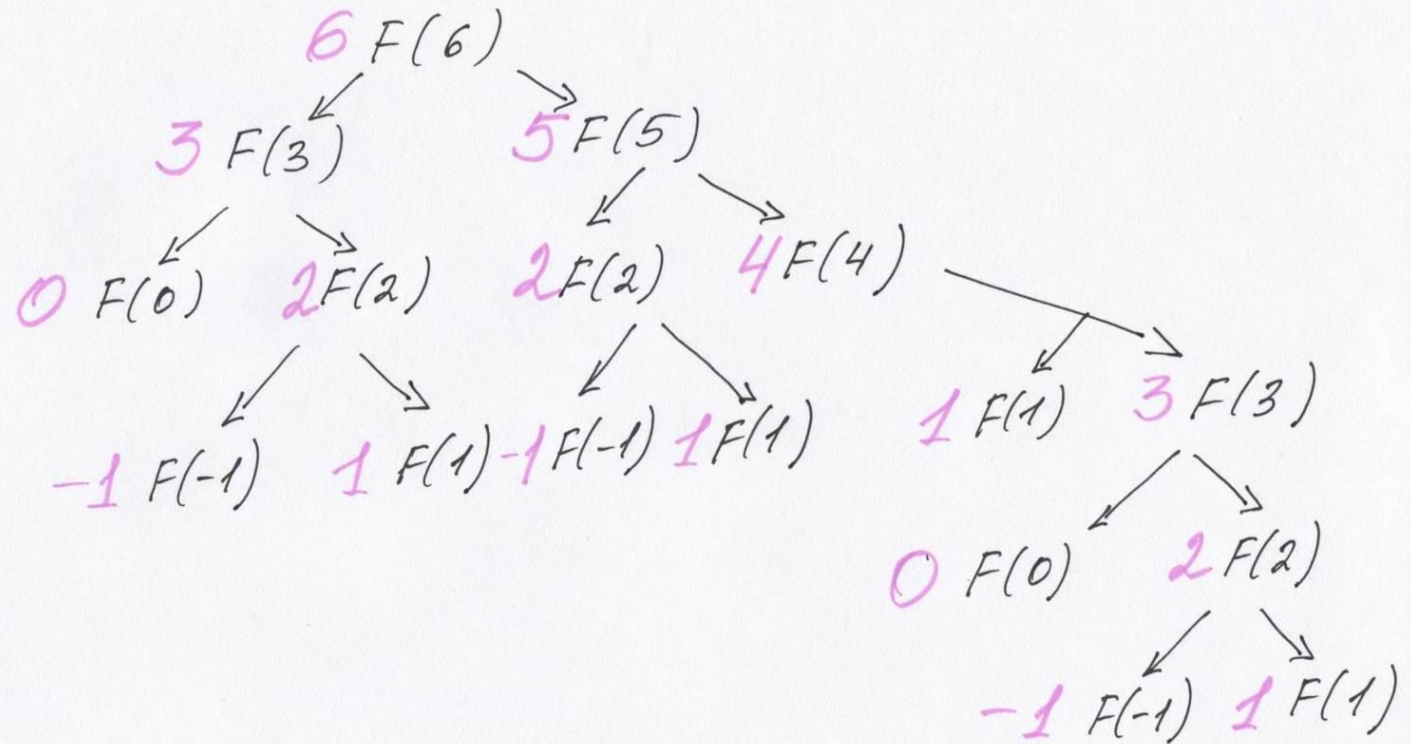 6 F(6)
3 F(3) 5 F(5)
0 F(0) 2 F(2) 2 F(2) 4 F(4)
-1 F(-1) 1 F(1) -1 F(-1) 1 F(1) 1 F(1) 3 F(3)
0 F(0) 2 F(2)
-1 F(-1) 1 F(1)